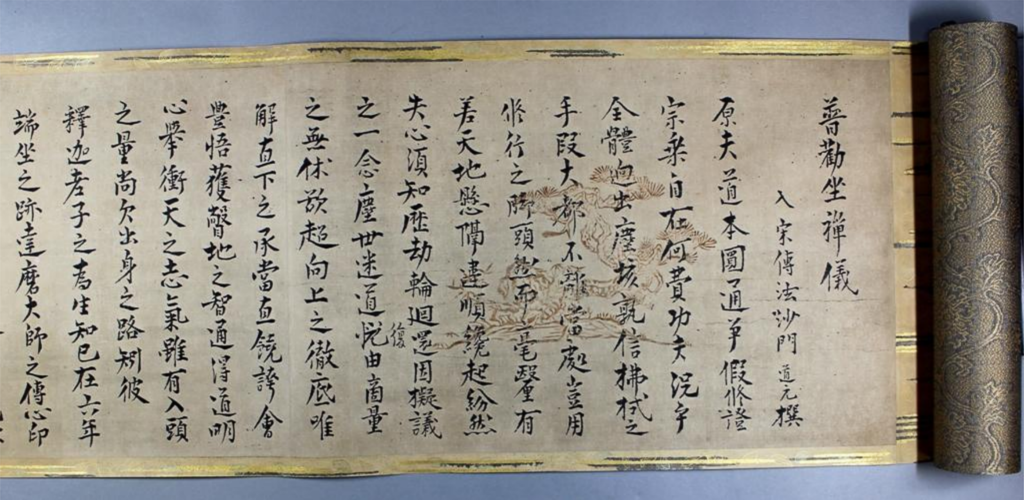 普勸坐禪儀
入宋傳法沙門道元撰
原夫道本圓通爭假修證
宗乘自在何費功夫況乎
全體迥出塵埃孰信拂拭之
手段大都不離當處豈用
修行之脚頭然而毫釐有
差天地懸隔違順纔起紛然
失心須知歷劫輪迴還因擬議
之一念塵世迷道復由商量
之無休欲超向上之徹底唯
解直下之承當直饒誇會
豐悟獲瞥地之智通得道明
心擧衝天之志氣雖有入頭
之量尚欠出身之路矧彼
釋迦老子之爲生知已在六年
端坐之跡達磨大師之傳心印